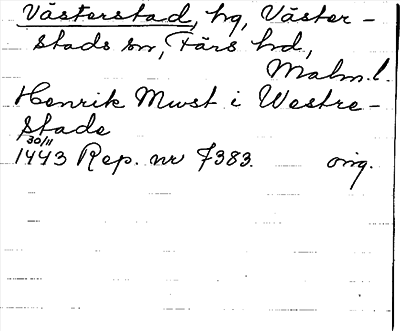 Västerstad, hg, Väster-
stads sn, Färs hd,
Malm. l.
Henrik Mwst i Westre-
stade
30/11
1443 Rep. nr 7383. orig.